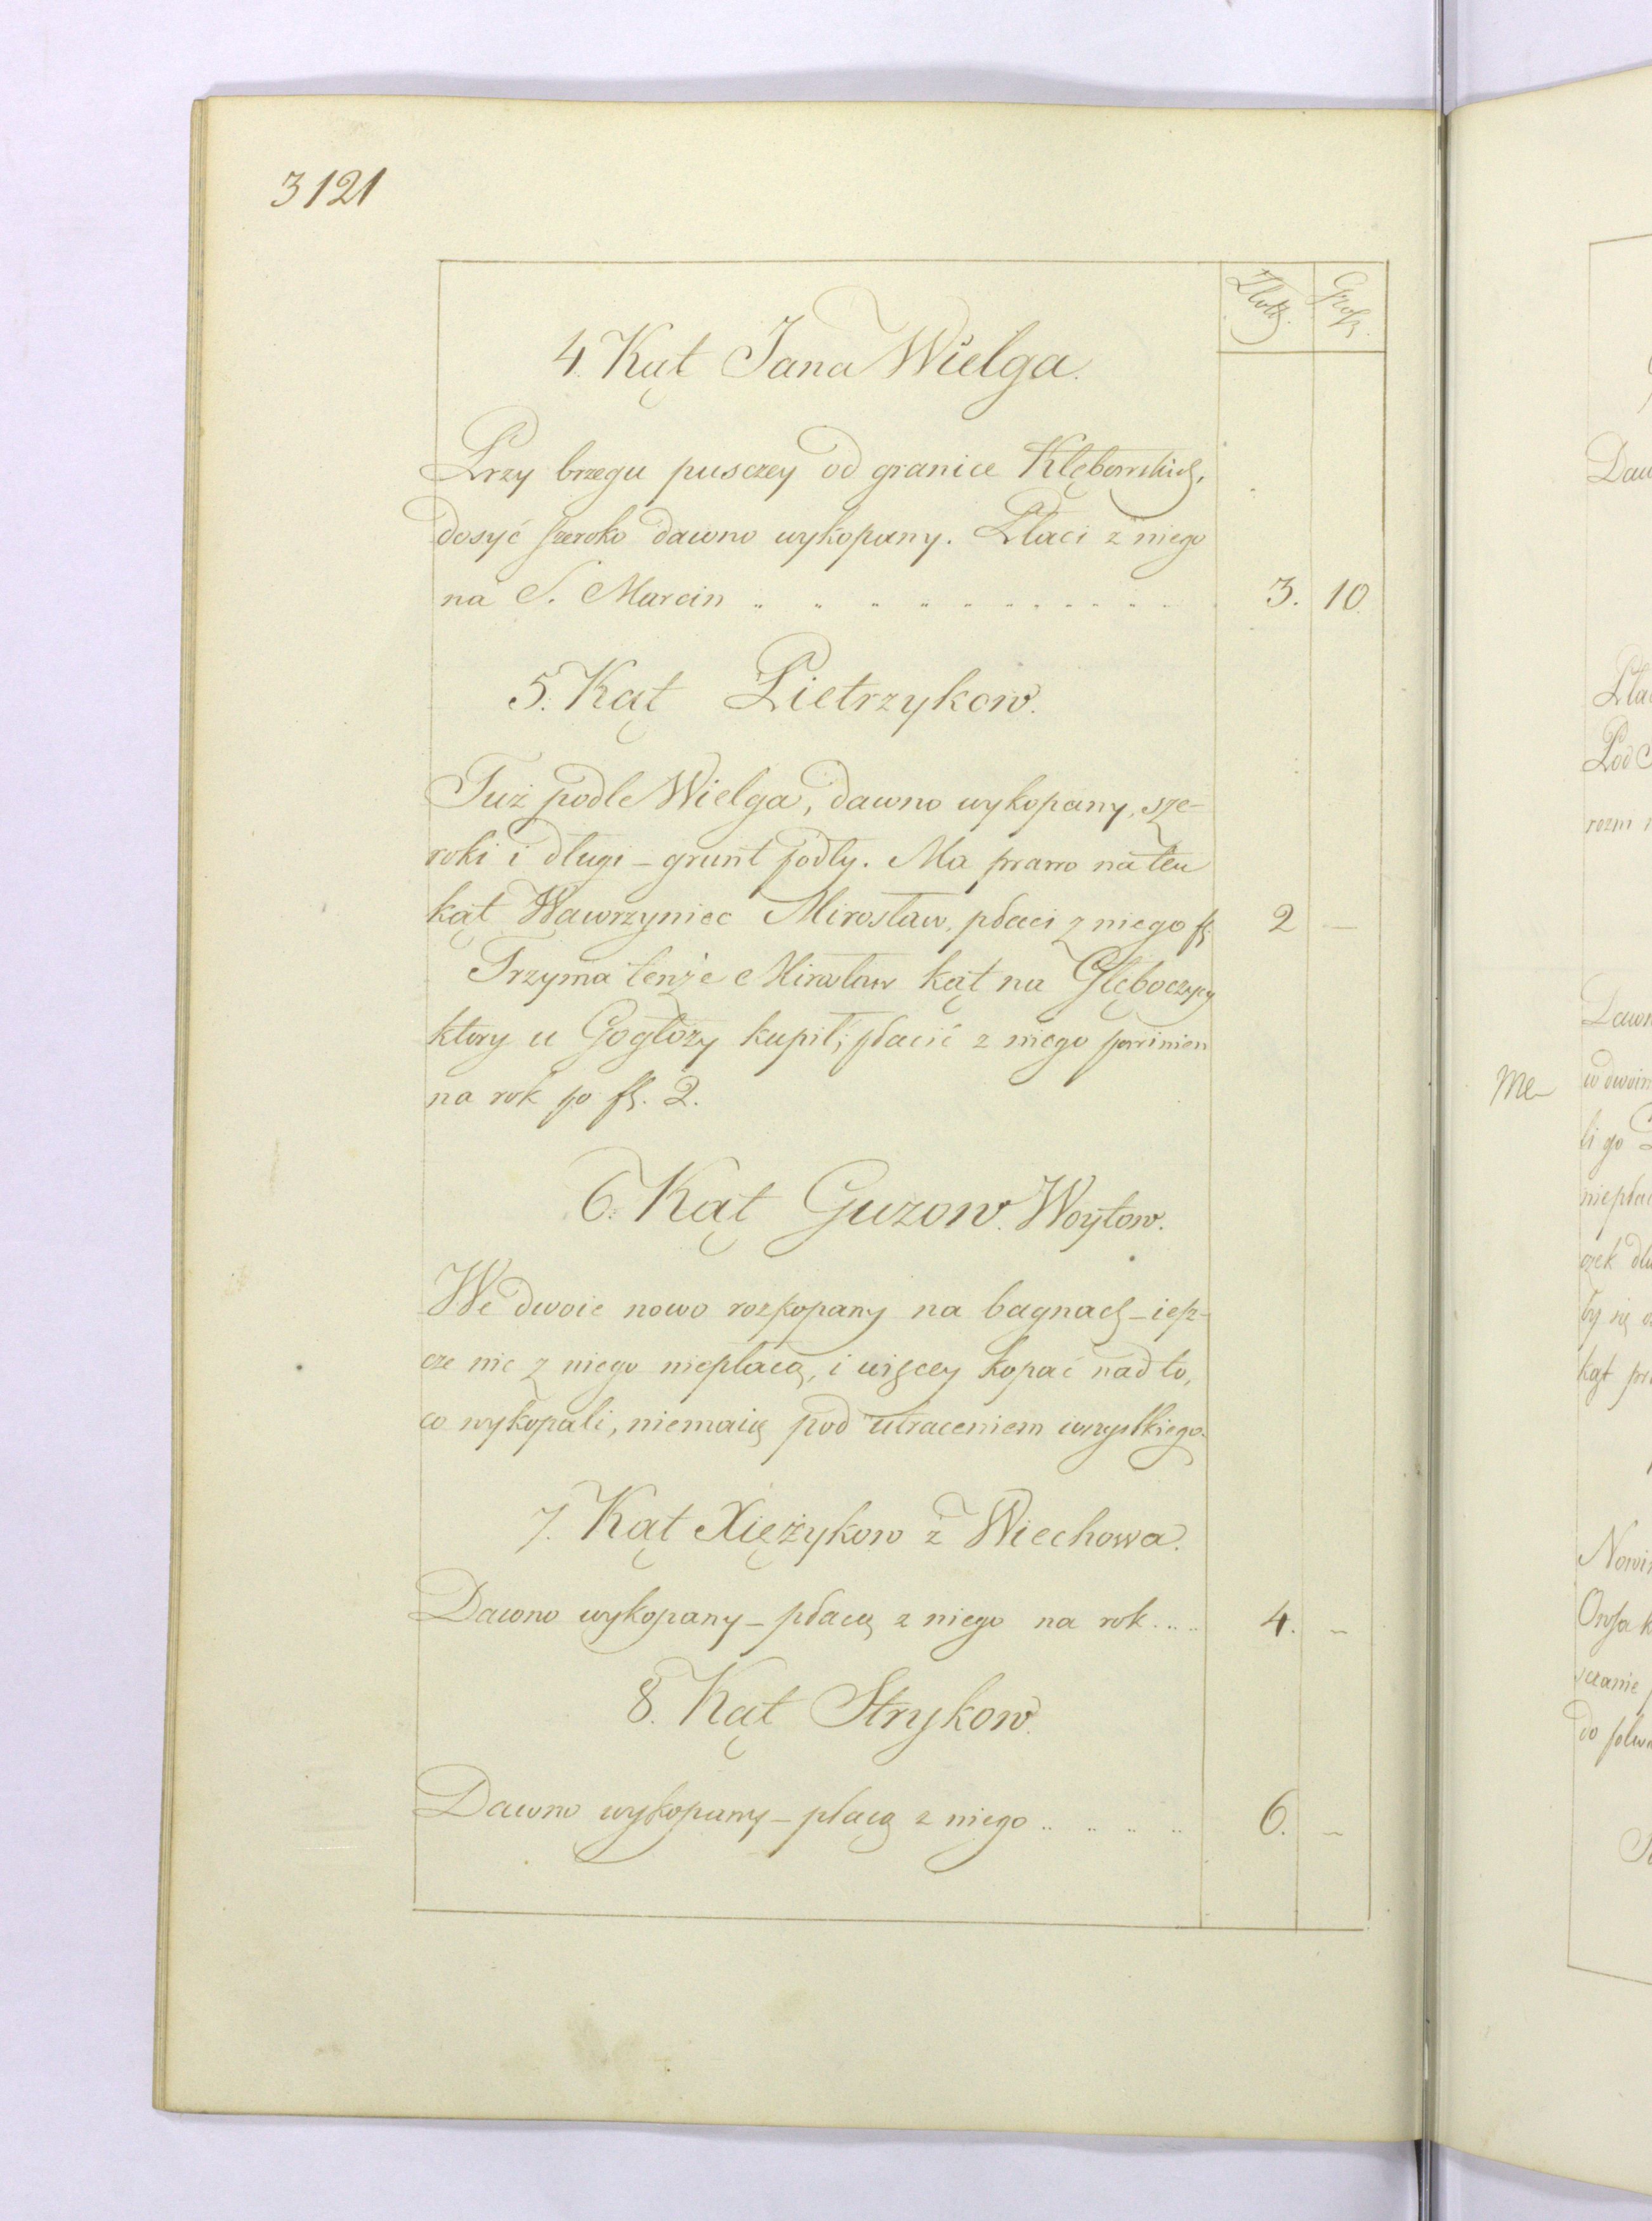 3121
Złot. Grosz.
4. Kąt Jana Wielga.
Przy brzegu pusczey od granice Klębowskich,
dosyć szeroko dawno wykopany. Płaci z niego
na S. Marcin 3. 10.
5. Kąt Pietrzykow.
Tuż podle Wielga, dawno wykopany, sze-
roki i długi – grunt podły. Ma prawo na ten
kąt Wawrzyniec Mirosław, płaci z niego fl. 2 —
Trzyma tenże Mirosław kąt na Głęboczycy
ktory u Gogłozy kupił; płacić z niego powinien
na rok po fl. 2.
6. Kąt Guzow. Woytow.
We dwoie nowo rozkopany na bagnach – iesz-
cze nic z niego niepłacą, i więcey kopać nad to,
co wykopali, niemaią pod utraceniem wszystkiego.
7. Kąt Xiężykow z Wiechowa.
Dawno wykopany – płacą z niego na rok 4. –
8. Kąt Strykow.
Dawno wykopany – płacą z niego 6. –
Me